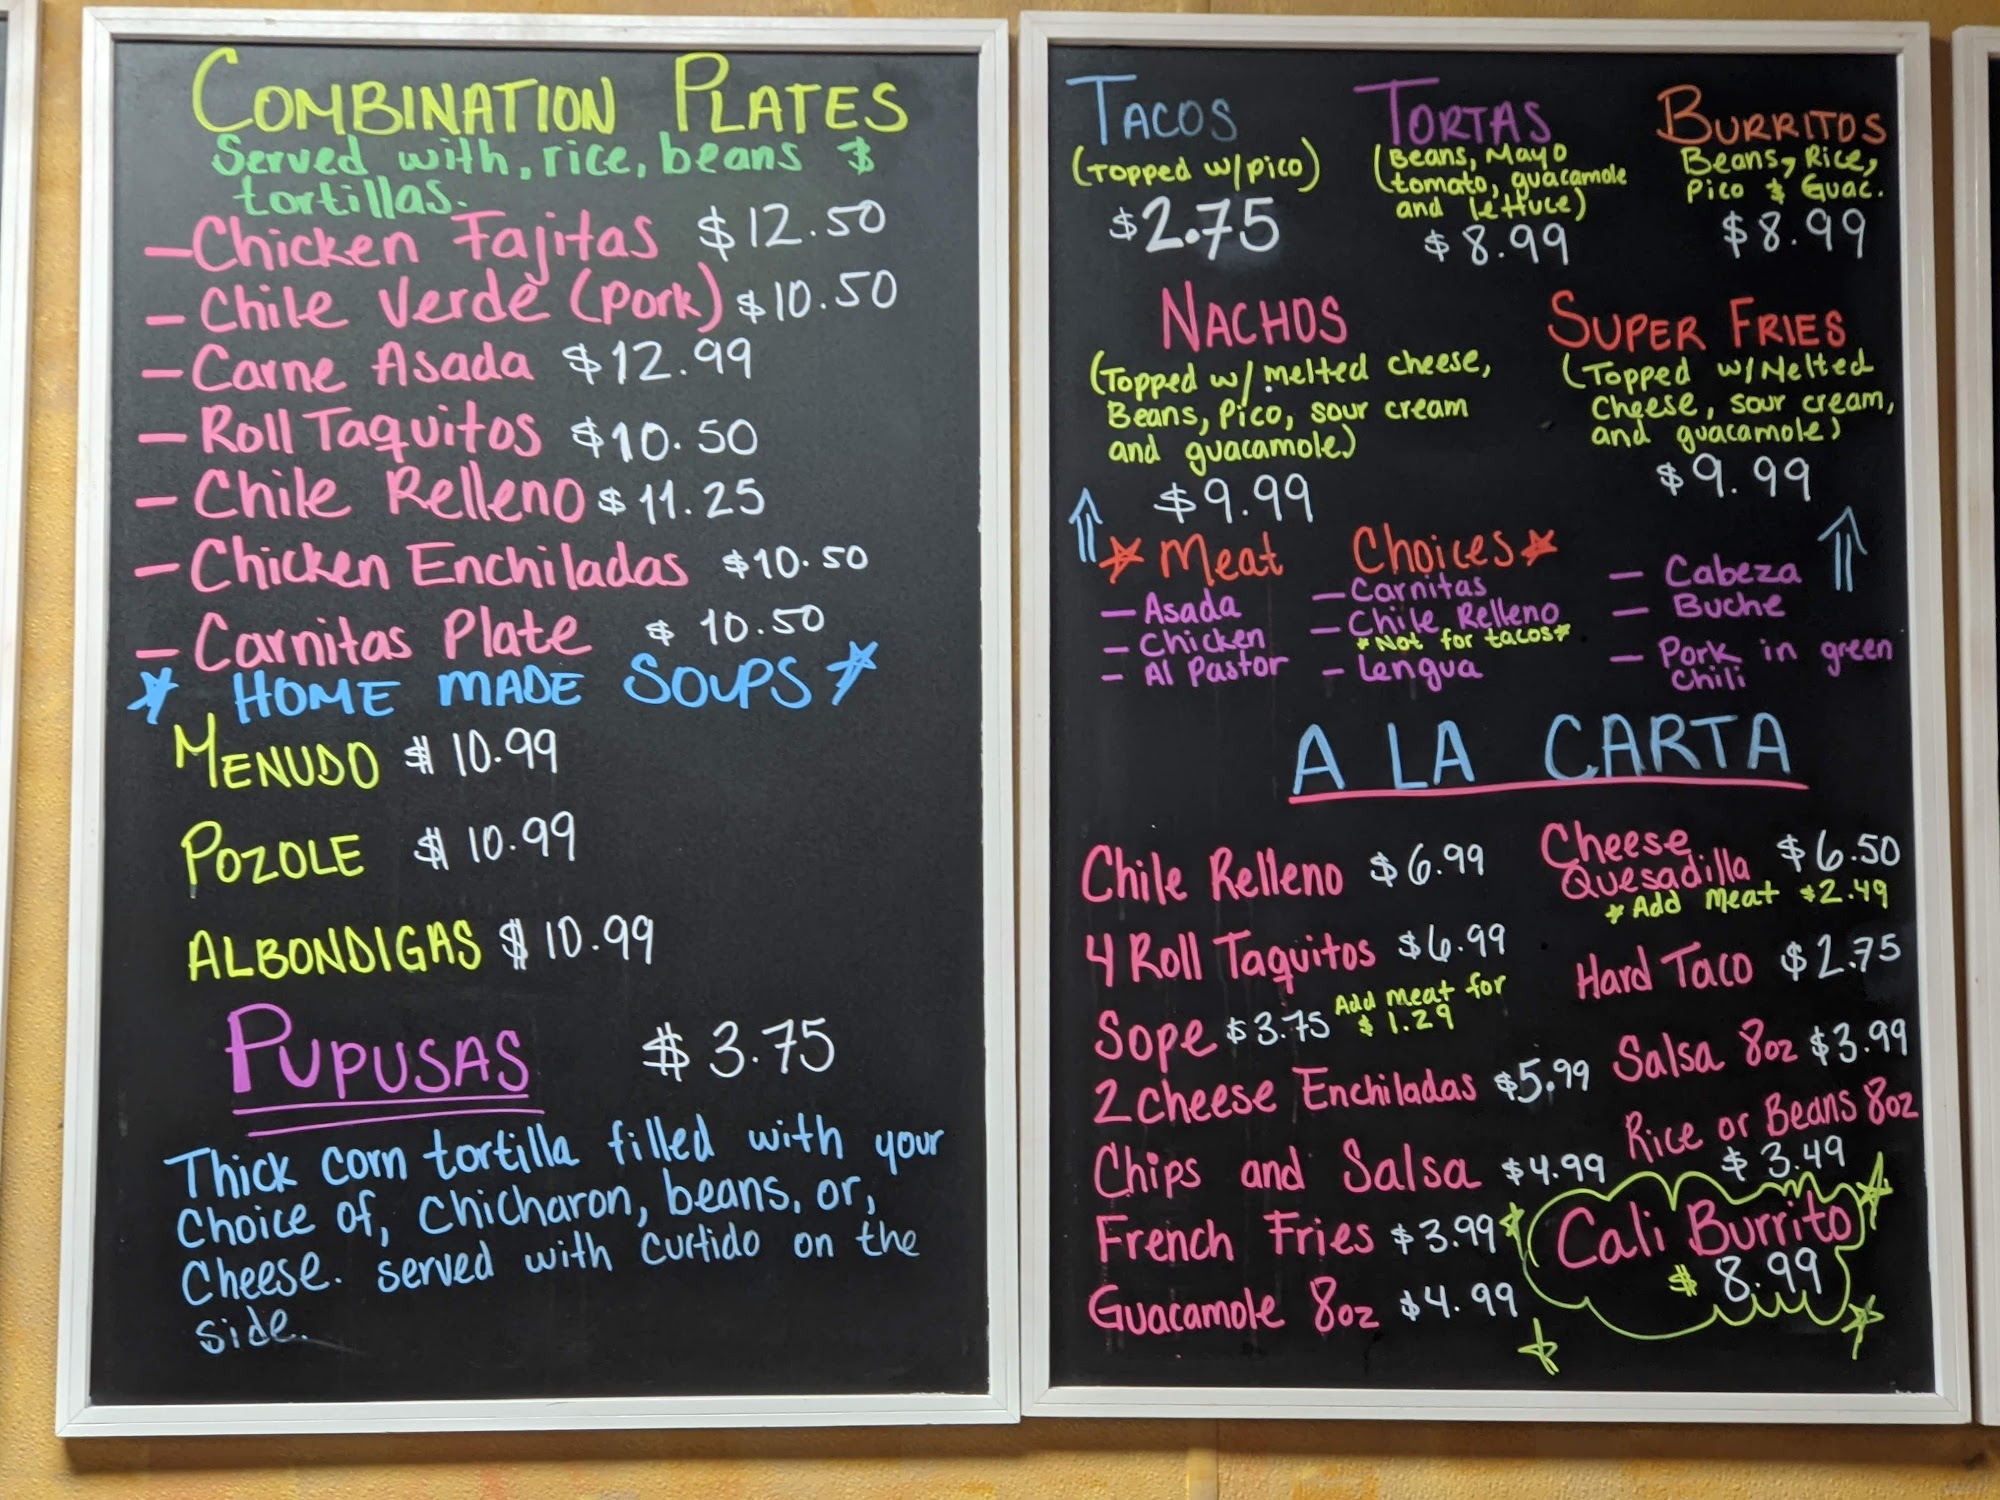 COMBINATION PLATES
Served with, rice, beans &
tortillas.
- Chicken Fajitas $12.50
- Chile Verde (pork) $10.50
- Carne Asada $12.99
- Roll Taquitos $10.50
- Chile Relleno $11.25
- Chicken Enchiladas $10.50
- Carnitas Plate $10.50
HOME MADE SOUPS
MENUDO $10.99
POZOLE $10.99
ALBONDIGAS $10.99
PUPUSAS $3.75
Thick corn tortilla filled with your
Choice of, Chicharon, beans, or,
Cheese. served with curtido on the
side.
TACOS
(Topped w/pico)
$2.75
TORTAS
(Beans, Mayo
tomato, guacamole
and lettuce)
$8.99
BURRITOS
Beans, Rice,
Pico & Guac.
$8.99
NACHOS
(Topped w/ melted cheese,
Beans, Pico, sour cream
and guacamole)
$9.99
SUPER FRIES
(Topped w/Melted
Cheese, sour cream,
and guacamole)
$9.99
Meat Choices
- Asada
- Chicken
- Al Pastor
- Carnitas
- Chile Relleno
*Not for tacos*
- Lengua
- Cabeza
- Buche
- Pork in green
Chili
A LA CARTA
Chile Relleno $6.99
4 Roll Taquitos $6.99
Sope $3.75 Add meat for
$1.29
2 Cheese Enchiladas $5.99
Chips and Salsa $4.99
French Fries $3.99
Guacamole 8oz $4.99
Cheese
Quesadilla $6.50
*Add Meat $2.49
Hard Taco $2.75
Salsa 8oz $3.99
Rice or Beans 8oz
$3.49
Cali Burrito
$8.99